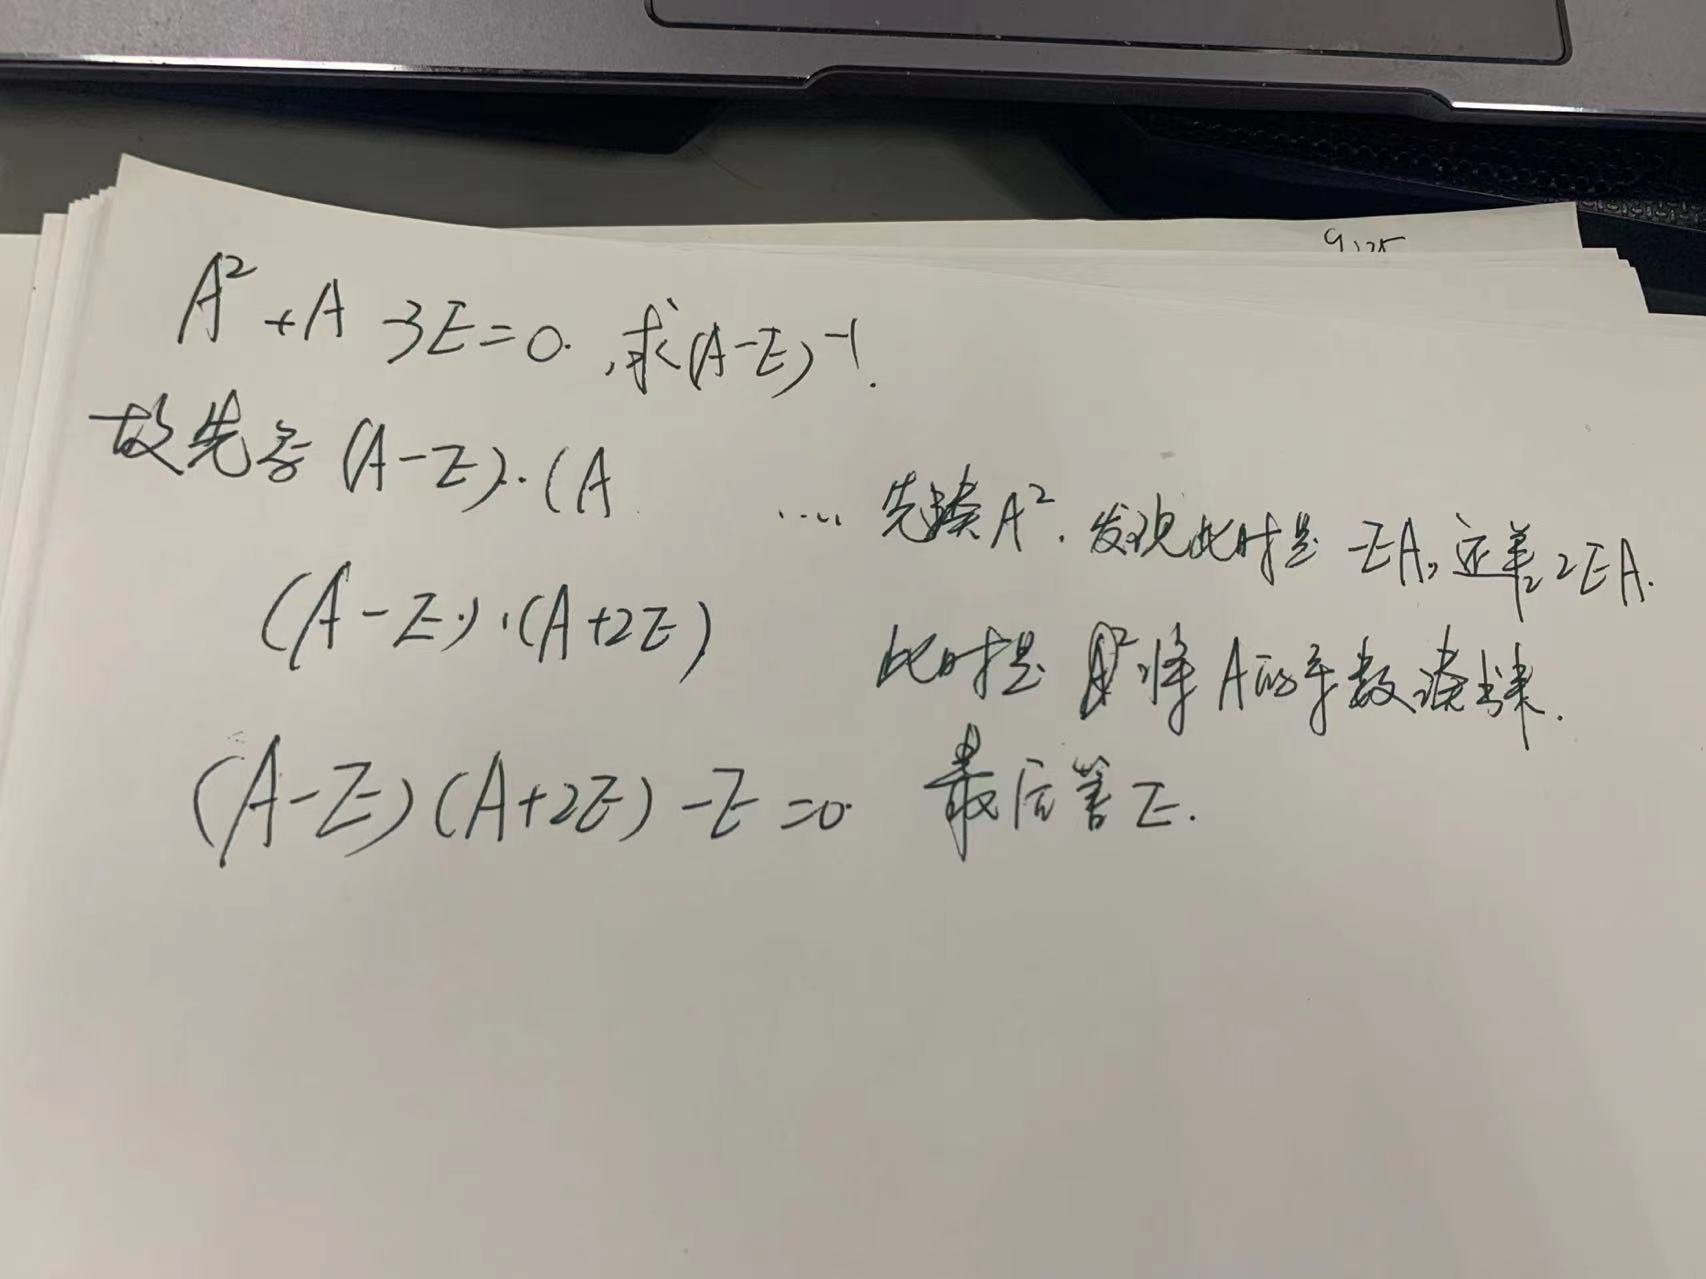 9.25
A² + A - 3E = 0. , 求(A-E)⁻¹.
故先写 (A-E)·(A .... 先凑A². 发现此时是 -EA, 还差2EA.
(A-E)·(A+2E) 此时是 将A的系数凑出来.
(A-E)(A+2E) -E =0. 最后善E.